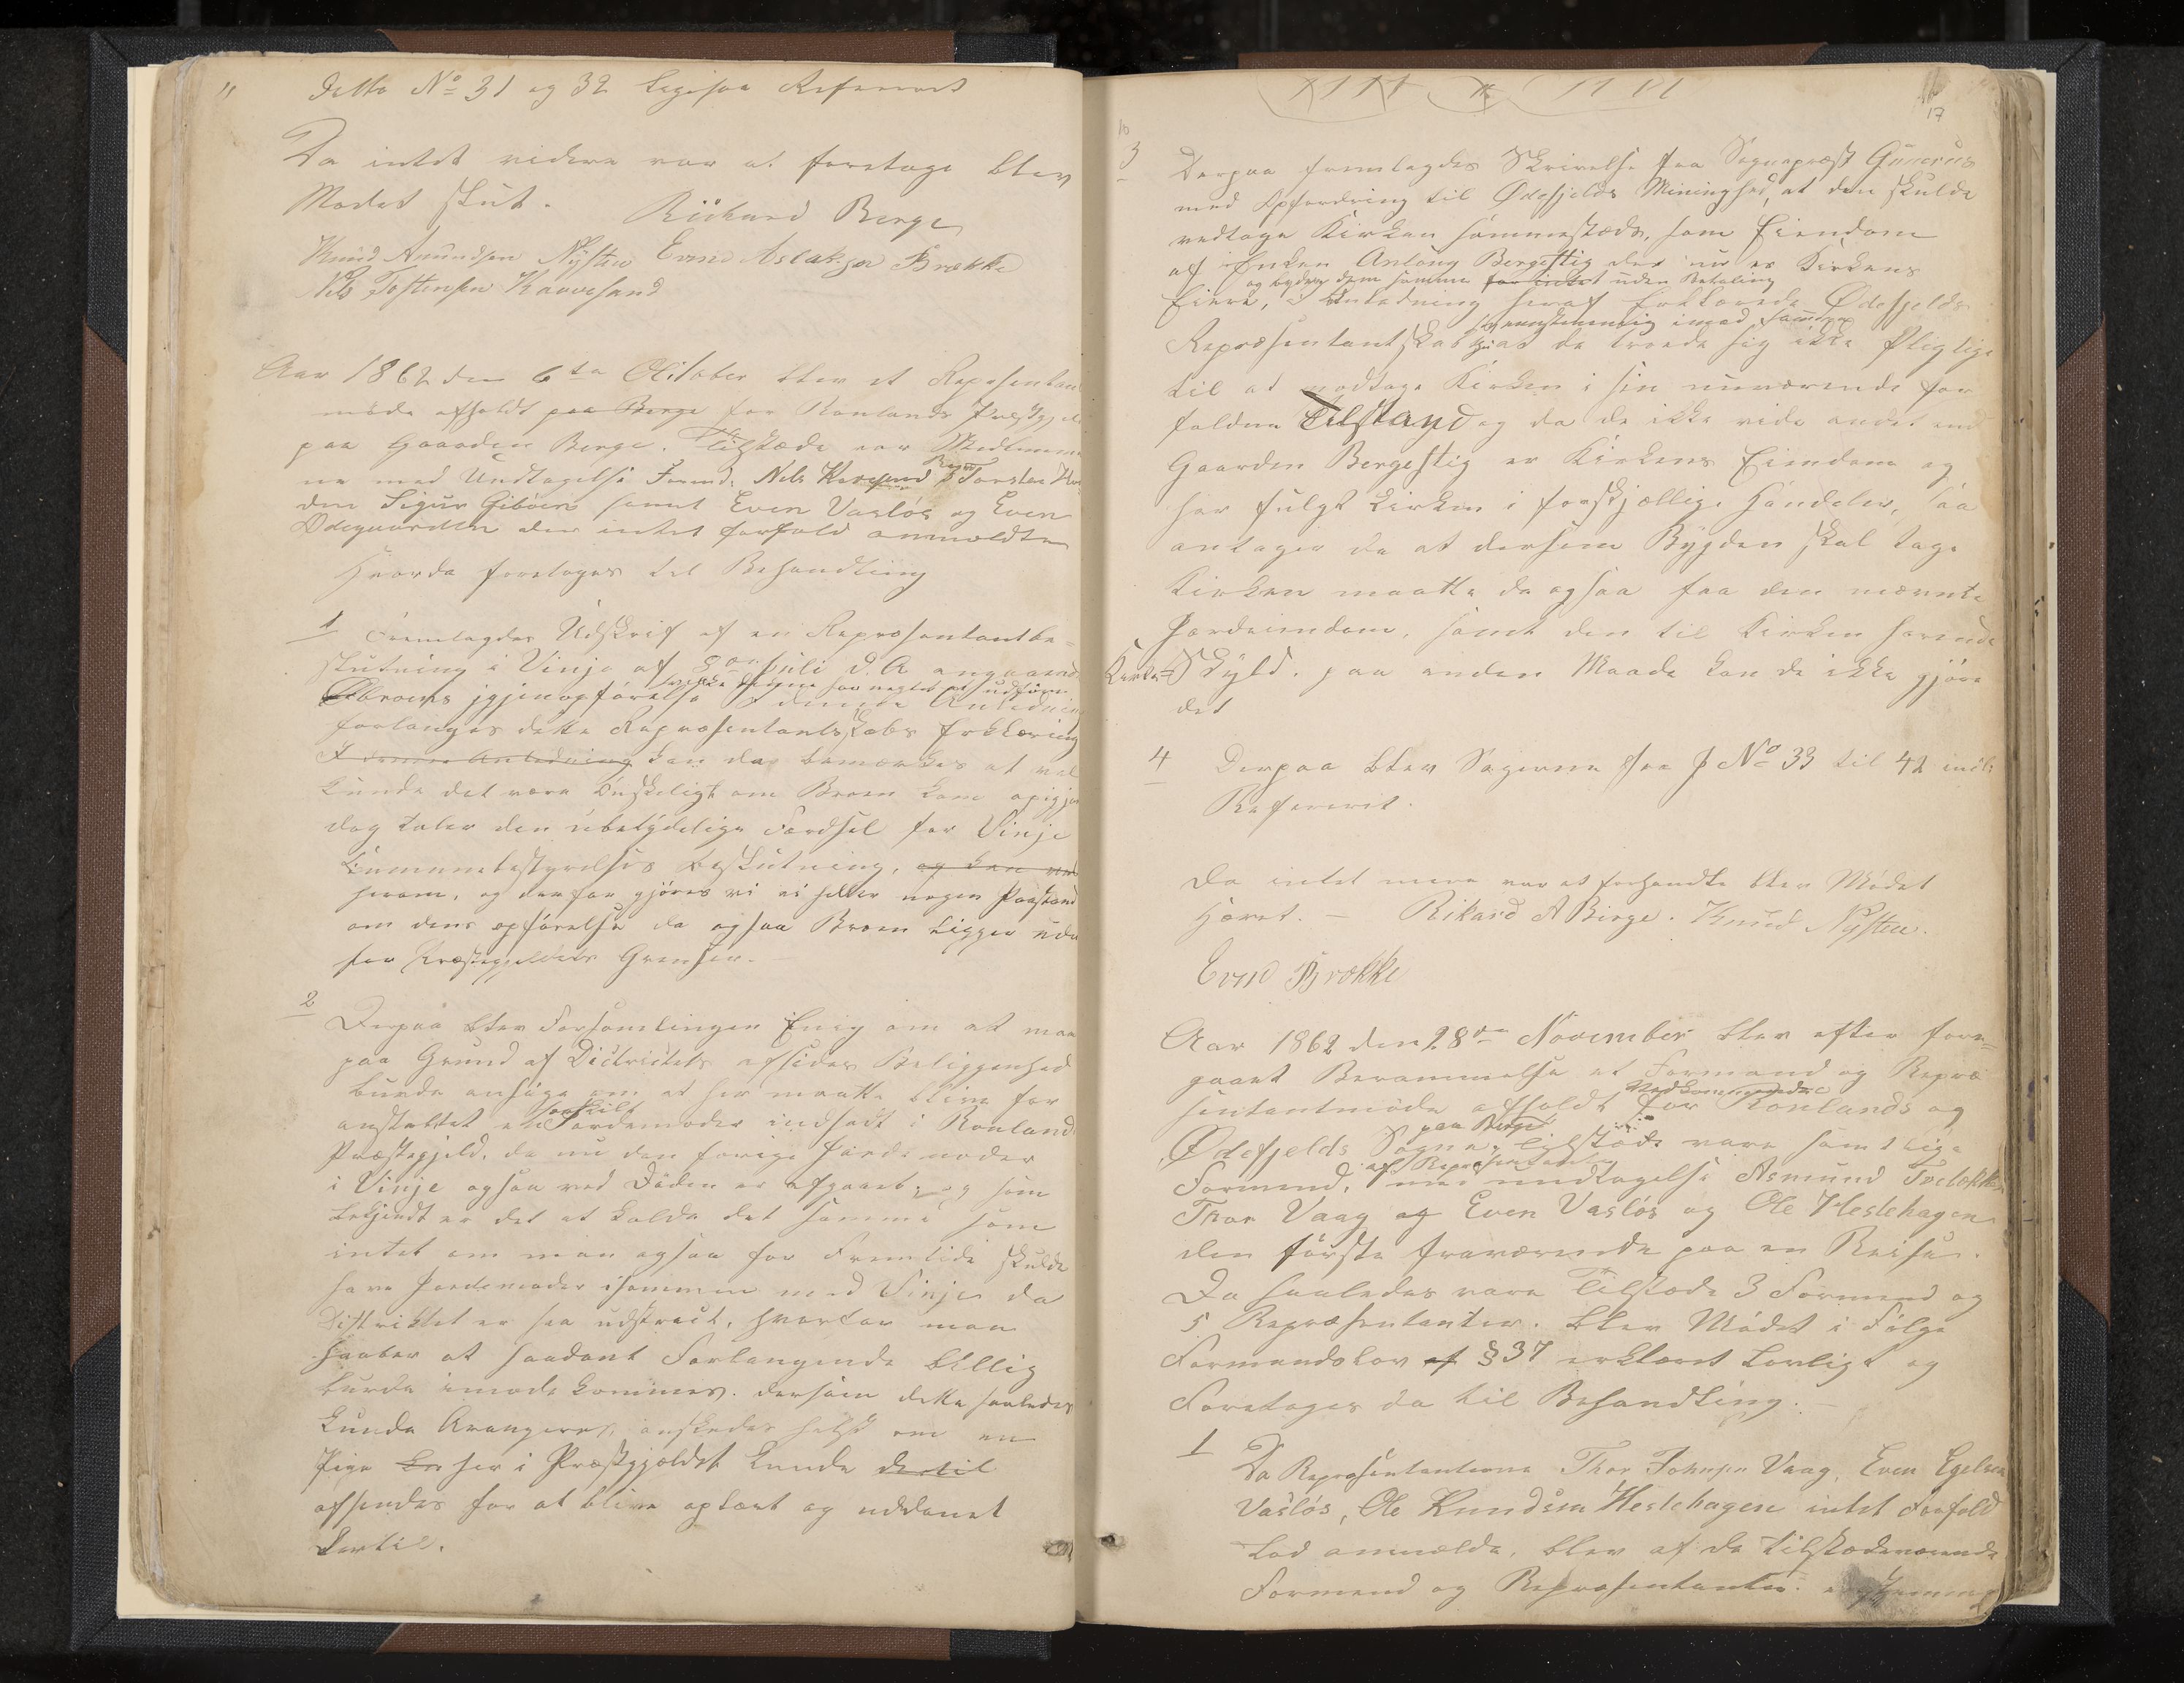 " Ditto No 31 og 32 ligesaa Refereret
Da intet videre var at foretage blev
Mødet slut. Richard Berge
Knud Amundsen Nysten Evend Aslaksen Brække
Nils Tostensen Kaavesand
Aar 1862 den 6te Oktober blev et Repræsentant
møde afholdt paa Berge for Raulands Præstegjeld
paa Gaarden Berge. Tilstæde var Medlemmer
ne med Undtagelse Formd: Nils Kaavesand Repr: Torsten
den Sigur Gibøen samt Even Vasløs og Even
Ødegaarden der intet forfald anmældte
Hvorda foretoges til Behandling
1 Fremlagdes Udskrift af en Repræsentantbe=
slutning i Vinje af Juli d. A angaaende
Broens igjenopførelse I denne Anledning
forlanges dette Repræsentantskabs Erklæring
I denne Anledning kan da bemærkes at vel
kunde det være Ønskeligt om Broen kom
dog taler den ubetydelige Færdsel for Vinje
Kumunebestyrelses Beslutning, og kan
herom, og derfor gjøres vi ei heller nogen Paastand
om dens opførelse da ogsaa Broen ligger uden
for Præstegjeldets Grenser.
2 Derpaa blev Forsamlingen Enig om at man
paa Grund af Dictrictets afsides Beliggenhed
burde ansøge om at her maatte blive for
anstaltet en særskilt Jordemoder indsadt i Rauland
Præstegjeld, da nu den forige Jordemoder
i Vinje ogsaa ved Døden er afgaaet, og som
bekjendt er det at kalde det samme som
intet om man ogsaa for Fremtide skulde
have Jordemoder isammen med Vinje da
Distriktet er saa udstrakt, hvorfor man
haaber at saadant Forlangende billig
burde imødekommes. dersom dette saaledes
kunde Arangeres, ønskedes helst om en
Pige her i Præstgjeldet kunde dertil
afsendes for at blive oplært og uddanet
dertil.
17
3 Derpaa fremlagdes Skrivelse fra Sognepræst
med Opfordring til Ødefjelds Meninghed, at den skulde
vedtage Kirken sammesteds, som Eiendom
af Enken Anlaug Bergestig der nu er Kirkens
og byder dem samme for intet uden Betaling
Eiere, I Anledning heraf Erklærede Ødefjelds
enstemmig imod samme
Repræsentantskab at de troede sig ikke Pligtige
til at modtage Kirken i sin nuværende for
faldne Tilstand og da de ikke vide andet end
Gaarden Bergestig er Kirkens Eiendom og
har fulgt Kirken i forskjællige Handeler, saa
antager de at dersom Bygden skal tage
Kirken maatte de ogsaa faa den nævnte
Jordeiendom, samt den til Kirken havende
Kirke= Skyld. paa anden Maade kan de ikke gjøre
det
4 Derpaa blev Sagerne fra J No 33 til 42 incl:
Refererit.
Da intet mere var at forhandle blev Mødet
Hævet. — Rikard A Birge. Knud Nysten.
Evend Brække
Aar 1862 den 28de November blev efter fore=
gaaet Berammelse et Formand og Repræ
sentantmøde afholdt for Vedkommende Raulands og
Ødefjelds Sogne, paa Berge Tilstæde vare samtlige
Formænd, af Repræsentanter med undtagelse Asmund Tvelækken
Thor Vaag og Even Vasløs og Ole Heslehagen
den første fraværende paa en Reise.
Da saaledes vare Tilstæde 3 Formænd og
5 Repræsentanter. blev Mødet i Følge
Formandslov af § 37 erklæret Lovligt og
Foretoges da til Behandling. —
1 Da Repræsentanterne Thor Johnsen Vaag, Even Egelsen
Vasløs, Ole Knudsen Heslehagen intet Forfald
lod anmælde, blev af de tilstædeværende
Formænd og Repræsentanter